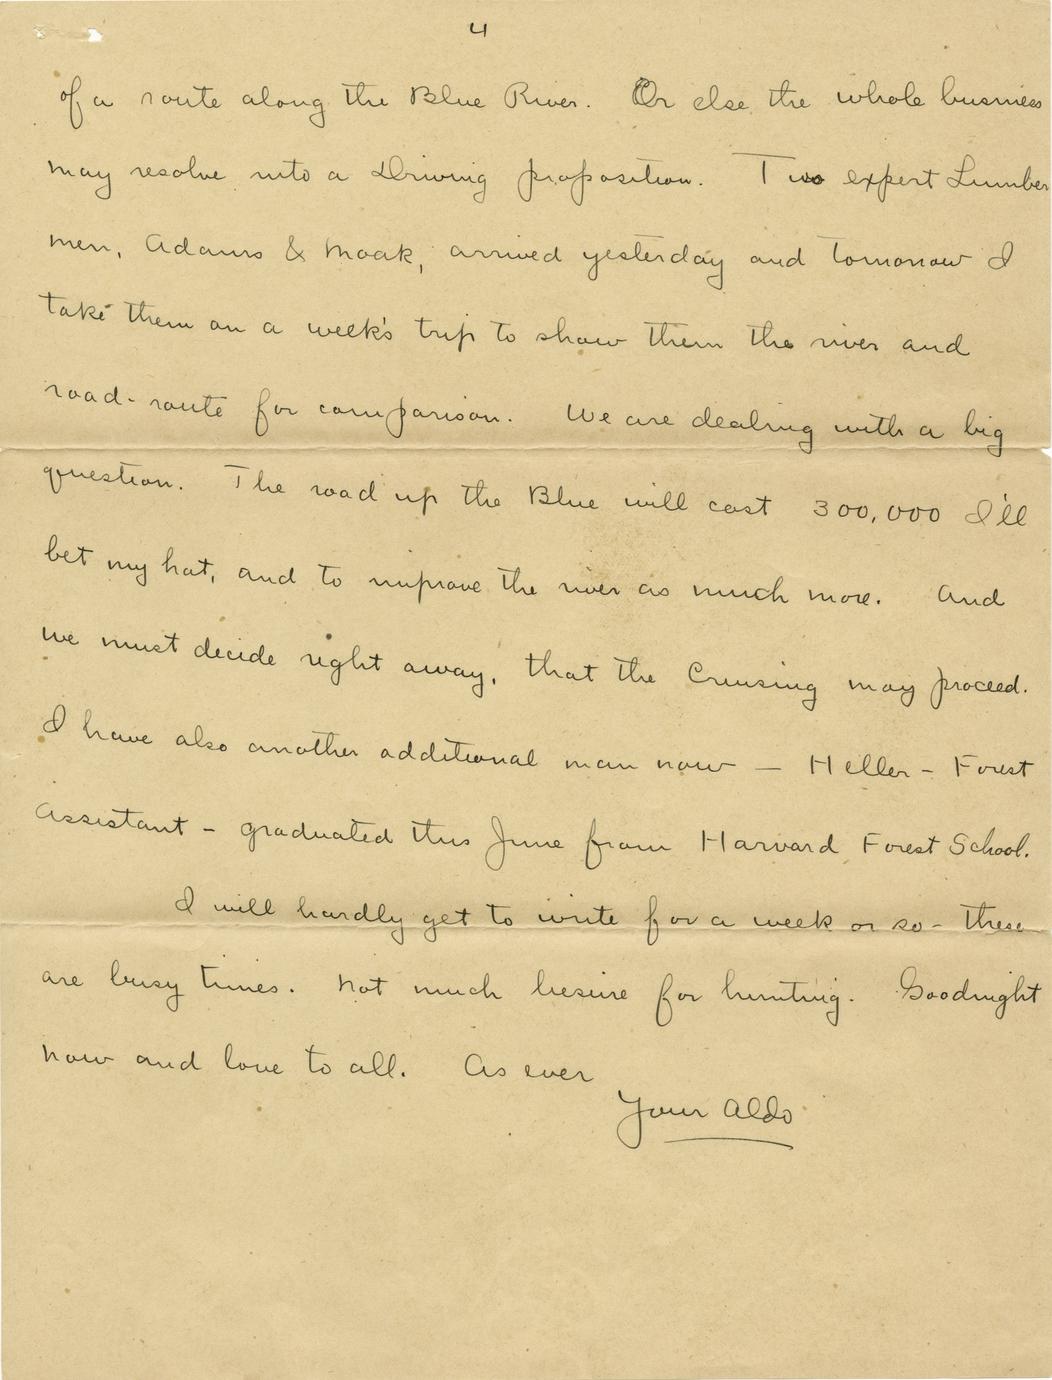 4
of a route along the Blue River. Or else the whole business
may resolve into a Driving proposition. Two expert Lumber
men, Adams & Moak, arrived yesterday and tomorrow I
take them on a week's trip to show them the river and
road-route for comparison. We are dealing with a big
question. The road up the Blue will cost 300,000 I'll
bet my hat, and to improve the river as much more. And
we must decide right away, that the Cruising may proceed.
I have also another additional man now — Heller - Forest
Assistant - graduated this June from Harvard Forest School.
I will hardly get to write for a week or so - these
are busy times. Not much liesure for hunting. Goodnight
now and love to all. As ever
Your Aldo